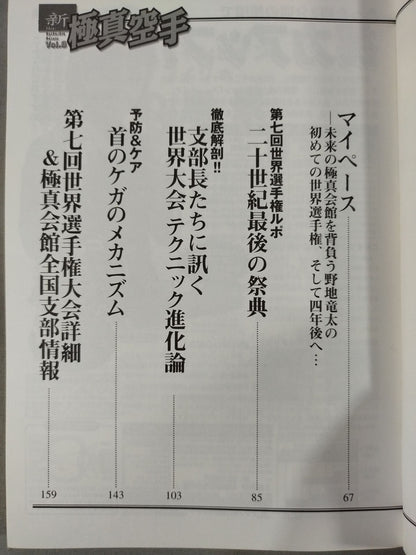 新
極真空手
Vol.8
マイペース
―未来の極真会館を背負う野地竜太の
初めての世界選手権、そして四年後へ…
67
第七回世界選手権ルポ
二十世紀最後の祭典
85
徹底解剖!!
支部長たちに訊く
世界大会テクニック進化論
103
予防&ケア
首のケガのメカニズム
143
第七回世界選手権大会詳細
&極真会館全国支部情報
159